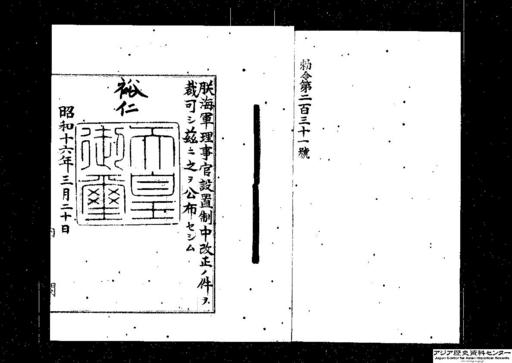 勅令第二百三十一號
朕海軍理事官設置制中改正ノ件ヲ
裁可シ茲ニ之ヲ公布セシム
裕仁
天皇
御璽
昭和十六年三月二十日
内
閣
アジア歴史資料センター
Japan Center for Asian Historical Records